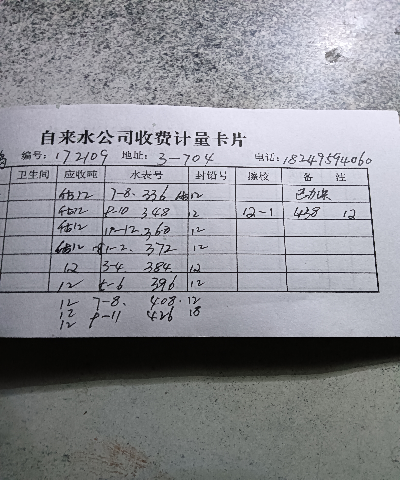 自来水公司收费计量卡片
编号: 172109 地址: 3-704 电话: 18249594060
卫生间 应收吨 水表号 封铅号 接校 备注
估12 7-8. 336 估12
估12 8-10 348 12 12-1 438 12
估12 10-12 360 12
估12 1-2. 372 12
12 3-4. 384 12
12 5-6 396 12
12 7-8. 408. 12
12
12 9-11 426 18